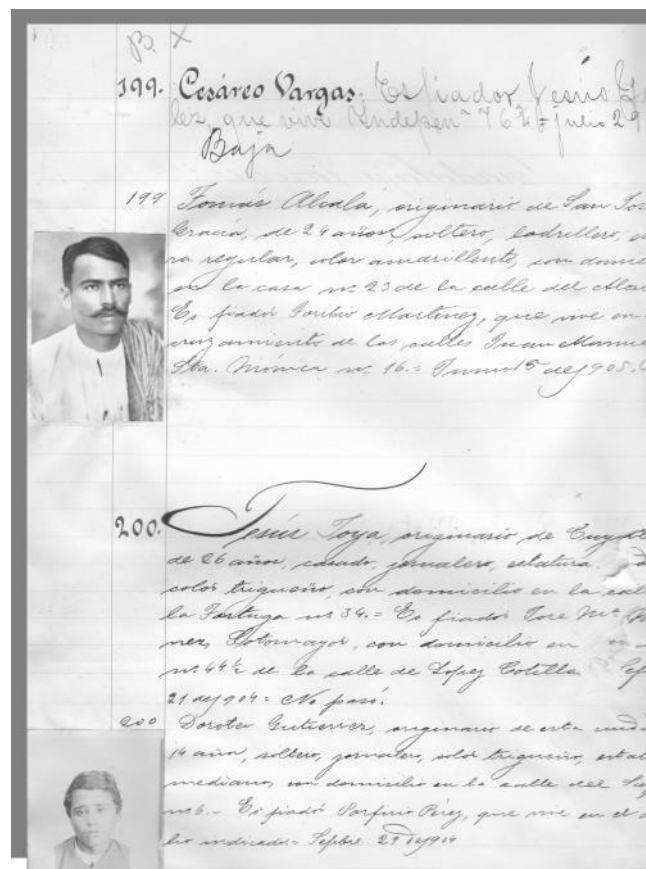 B X
199. Cesáreo Vargas. Es fiador Jesús
lez, que vive Independª 76½ = julio 29
Baja
199 Tomás Alcalá, originario de San José
Gracia, de 24 años, soltero, ladrillero,
ra regular, color amarillento, con domic
en la casa nº 23 de la calle del
Es fiador Toribio Martínez, que vive en
cruzamiento de las calles Juan Manue
Sta. Mónica nº 16. = Junio 15 de 1905.
200. Jesús Toya, originario de
de 26 años, casado, jornalero, estatura
color trigueño, con domicilio en la call
la Tortuga nº 34. = Es fiador Jose Mª
nez Sotomayor, con domicilio en
nº 44½ de la calle de Lopez Cotilla
21 de 1904 = No pasó.
200 Doroteo Gutierrez, originario de esta ciuda
14 años, soltero, jornalero, color trigueño, estat
mediana, con domicilio en la calle del
nº 6. - Es fiador Porfirio Pérez, que vive en el
lio indicado. = Sepbre 29 de 1904